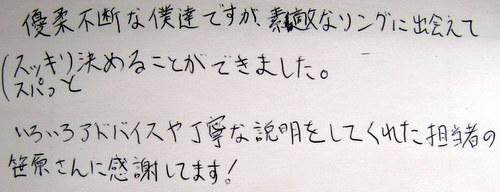 優柔不断な僕達ですが、素敵なリングに出会えて
(スッキリ決めることができました。
スパっと
いろいろアドバイスや丁寧な説明をしてくれた担当者の
笹原さんに感謝してます！